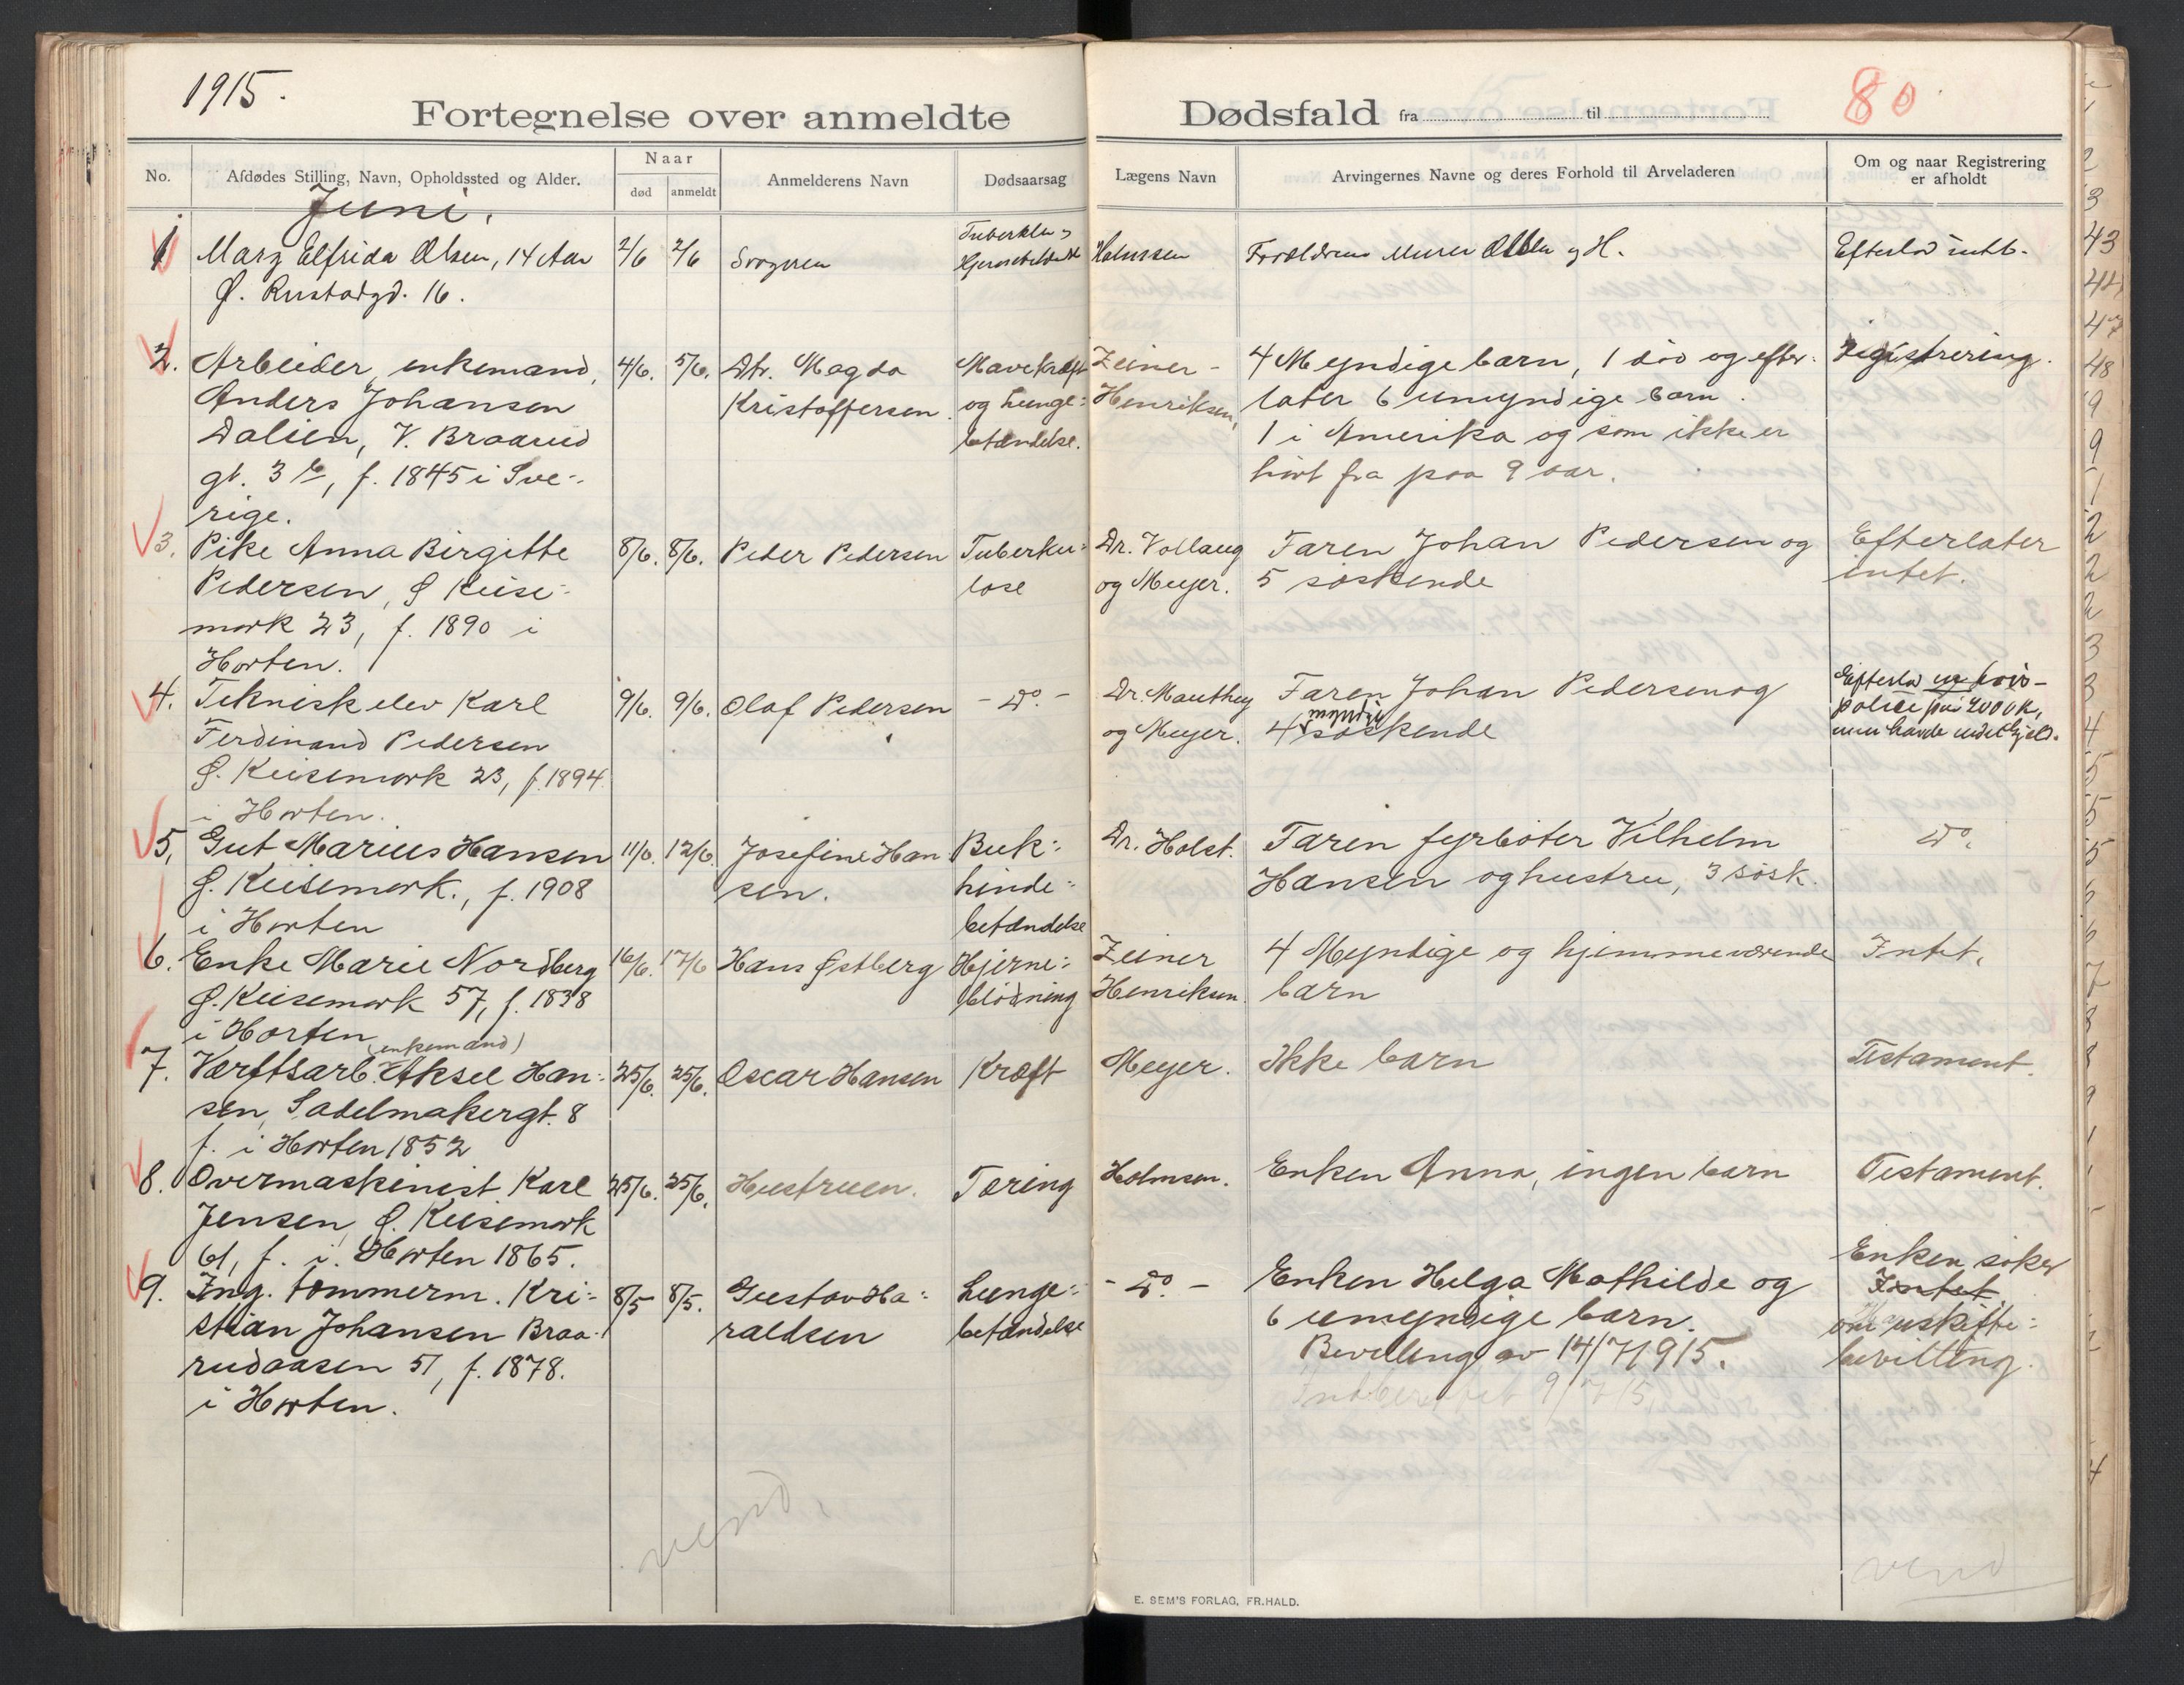 1915.
Fortegnelse over anmeldte
Dødsfald fra til
80
No.
Afdødes Stilling, Navn, Opholdssted og Alder.
Naar
død
anmeldt
Anmelderens Navn
Dødsaarsag
Lægens Navn
Arvingernes Navne og deres Forhold til Arveladeren
Om og naar Registrering
er afholdt
Juni.
1 Mary Elfrida Olsen, 14 Aar
Ø. Rustadgd. 16.
2/6 2/6
Svogeren
Holmsen
Forældrene Murer Olsen og H.
Efterlod intet.
2. Arbeider, enkemand,
Anders Johansen
Dalien, V. Braarud
gt. 3 b, f. 1845 i Sve-
rige.
4/6. 5/6.
Dtr. Magda
Kristoffersen.
Mavekræft
og Lunge-
betændelse.
Zeiner-
Henriksen,
4 Myndige barn, 1 død og efter-
later 6 umyndige barn.
1 i Amerika og som ikke er
hørt fra paa 9 aar.
Registrering.
3. Pike Anna Birgitte
Pedersen, Ø Keise-
mark 23, f. 1890 i
Horten.
8/6. 8/6.
Peder Pedersen
Tuberku-
lose
Dr. Vollaug
og Meyer.
Faren Johan Pedersen og
5 søskende
Efterlater
intet.
4. Teknisk elev Karl
Ferdinand Pedersen
Ø. Keisemark 23, f. 1894
i Horten.
9/6. 9/6.
Olaf Pedersen
- Do. -
Dr. Mauthey
og Meyer.
Faren Johan Pedersen og
myndige
4 søskende
Efterlod
police paa 2000 K,
men havde endel gjeld.
5. Gut Marius Hansen
Ø. Keisemark., f. 1908
i Horten
11/6. 12/6.
Josefine Han
sen.
Buk-
hinde-
betændelse
Dr. Holst.
Faren fyrbøter Vilhelm
Hansen og hustru, 3 søsk.
Do.
6. Enke Marie Nordberg
Ø. Keisemark 57, f. 1838
i Horten
16/6. 17/6
Hans Østberg
Hjerne-
blødning
Zeiner
Henriksen.
4 Myndige og hjemmeværende
barn
Intet.
(enkemand)
7. Værftsarb. Aksel Han-
sen, Sadelmakergt. 8
f. i Horten 1852
25/6. 25/6.
Oscar Hansen
Kræft
Meyer.
Ikke barn
Testament.
8. Overmaskinist Karl
Jensen, Ø. Keisemark
61, f. i. Horten 1865.
25/6. 25/6.
Hustruen.
Tæring
Holmsen.
Enken Anna, ingen barn
Testament.
9. Ing. tømmerm. Kri-
stian Johansen Braa-
rudaasen 51, f. 1878.
i Horten.
8/5 8/5.
Gustav Ha-
raldsen
Lunge-
betændelse
- Do. -
Enken Helga Mathilde og
6 umyndige barn.
Bevilling av 14/7 1915.
Indberettet 9/7 15.
Enken søker
Intet.
om uskifte-
bevilling.
vend.
vend
E. SEM'S FORLAG, FR.HALD.